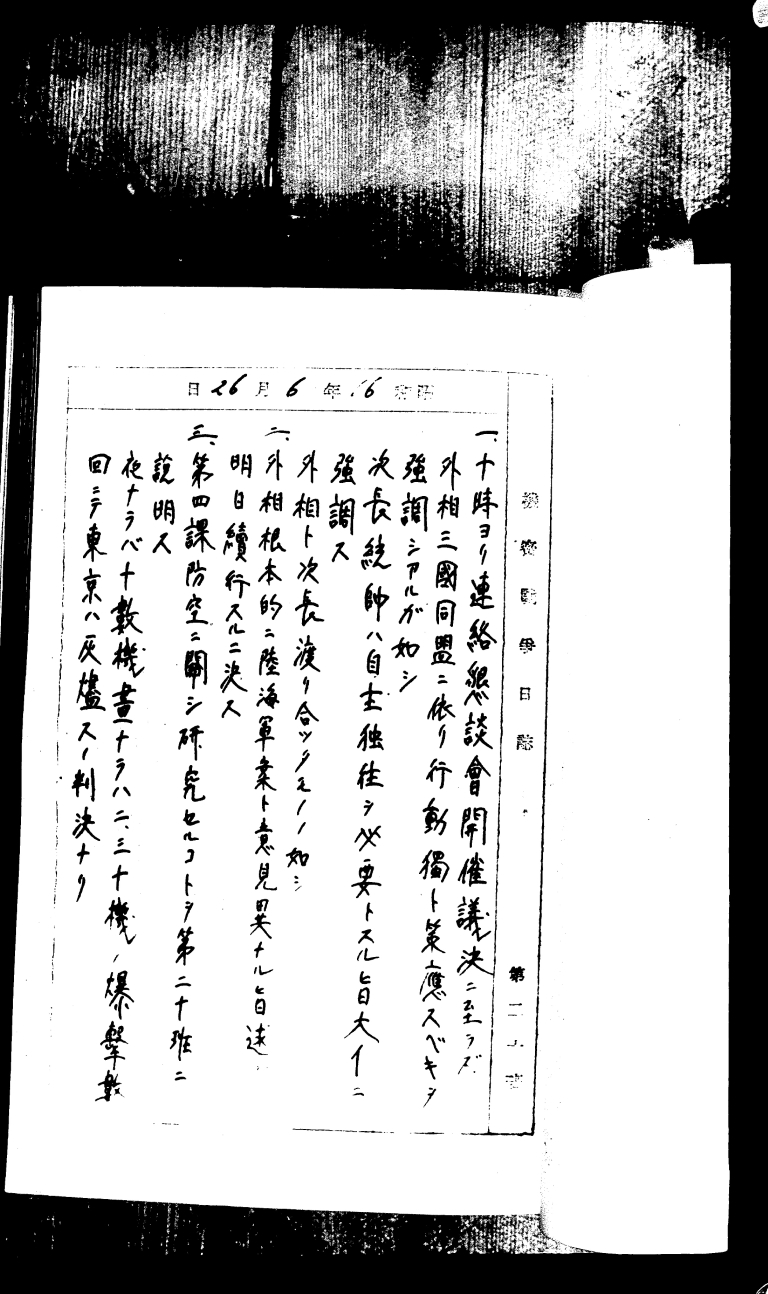 機密戰爭日誌
第二十班
昭和16年6月26日
一、十時ヨリ連絡懇談會開催議決ニ至ラズ
外相三國同盟ニ依リ行動獨ト策應スベキヲ
強調シアルガ如シ
次長統帥ハ自主独往ヲ必要トスル旨大イニ
強調ス
外相ト次長渡リ合ツタモノノ如シ
二、外相根本的ニ陸海軍案ト意見異ナル旨述
明日續行スルニ決ス
三、第四課防空ニ關シ研究セルコトヲ第二十班ニ
説明ス
夜ナラバ十數機晝ナラハ二、三十機ノ爆撃數
回ニテ東京ハ灰燼スノ判決ナリ